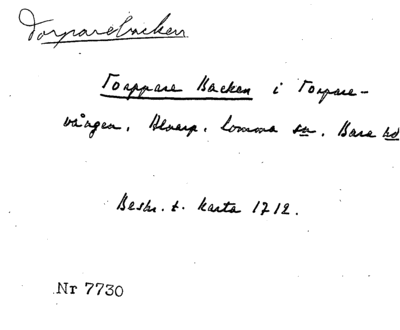 Torparebacken
Torppare Backen i Torpare-
vången, Alnarp, Lomma sn, Bara hd
Beskr. t. karta 1712.
Nr 7730